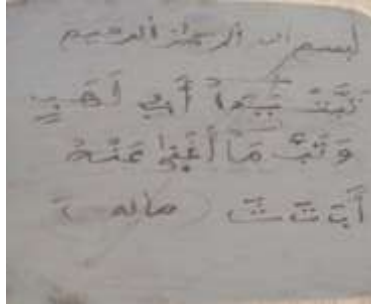 بسم الله الرحمن الرحيم
تَبَّتْ يَدَا أَبِي لَهَبٍ
وَتَبَّ مَا أَغْنَىٰ عَنْهُ
أَبَ تَ ثَ ( ماله )